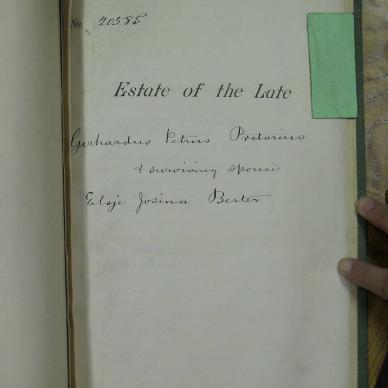 No. 20585
Estate of the Late
Gerhardus Petrus Pretorius
& surviving spouse
Elsje Josina Bester